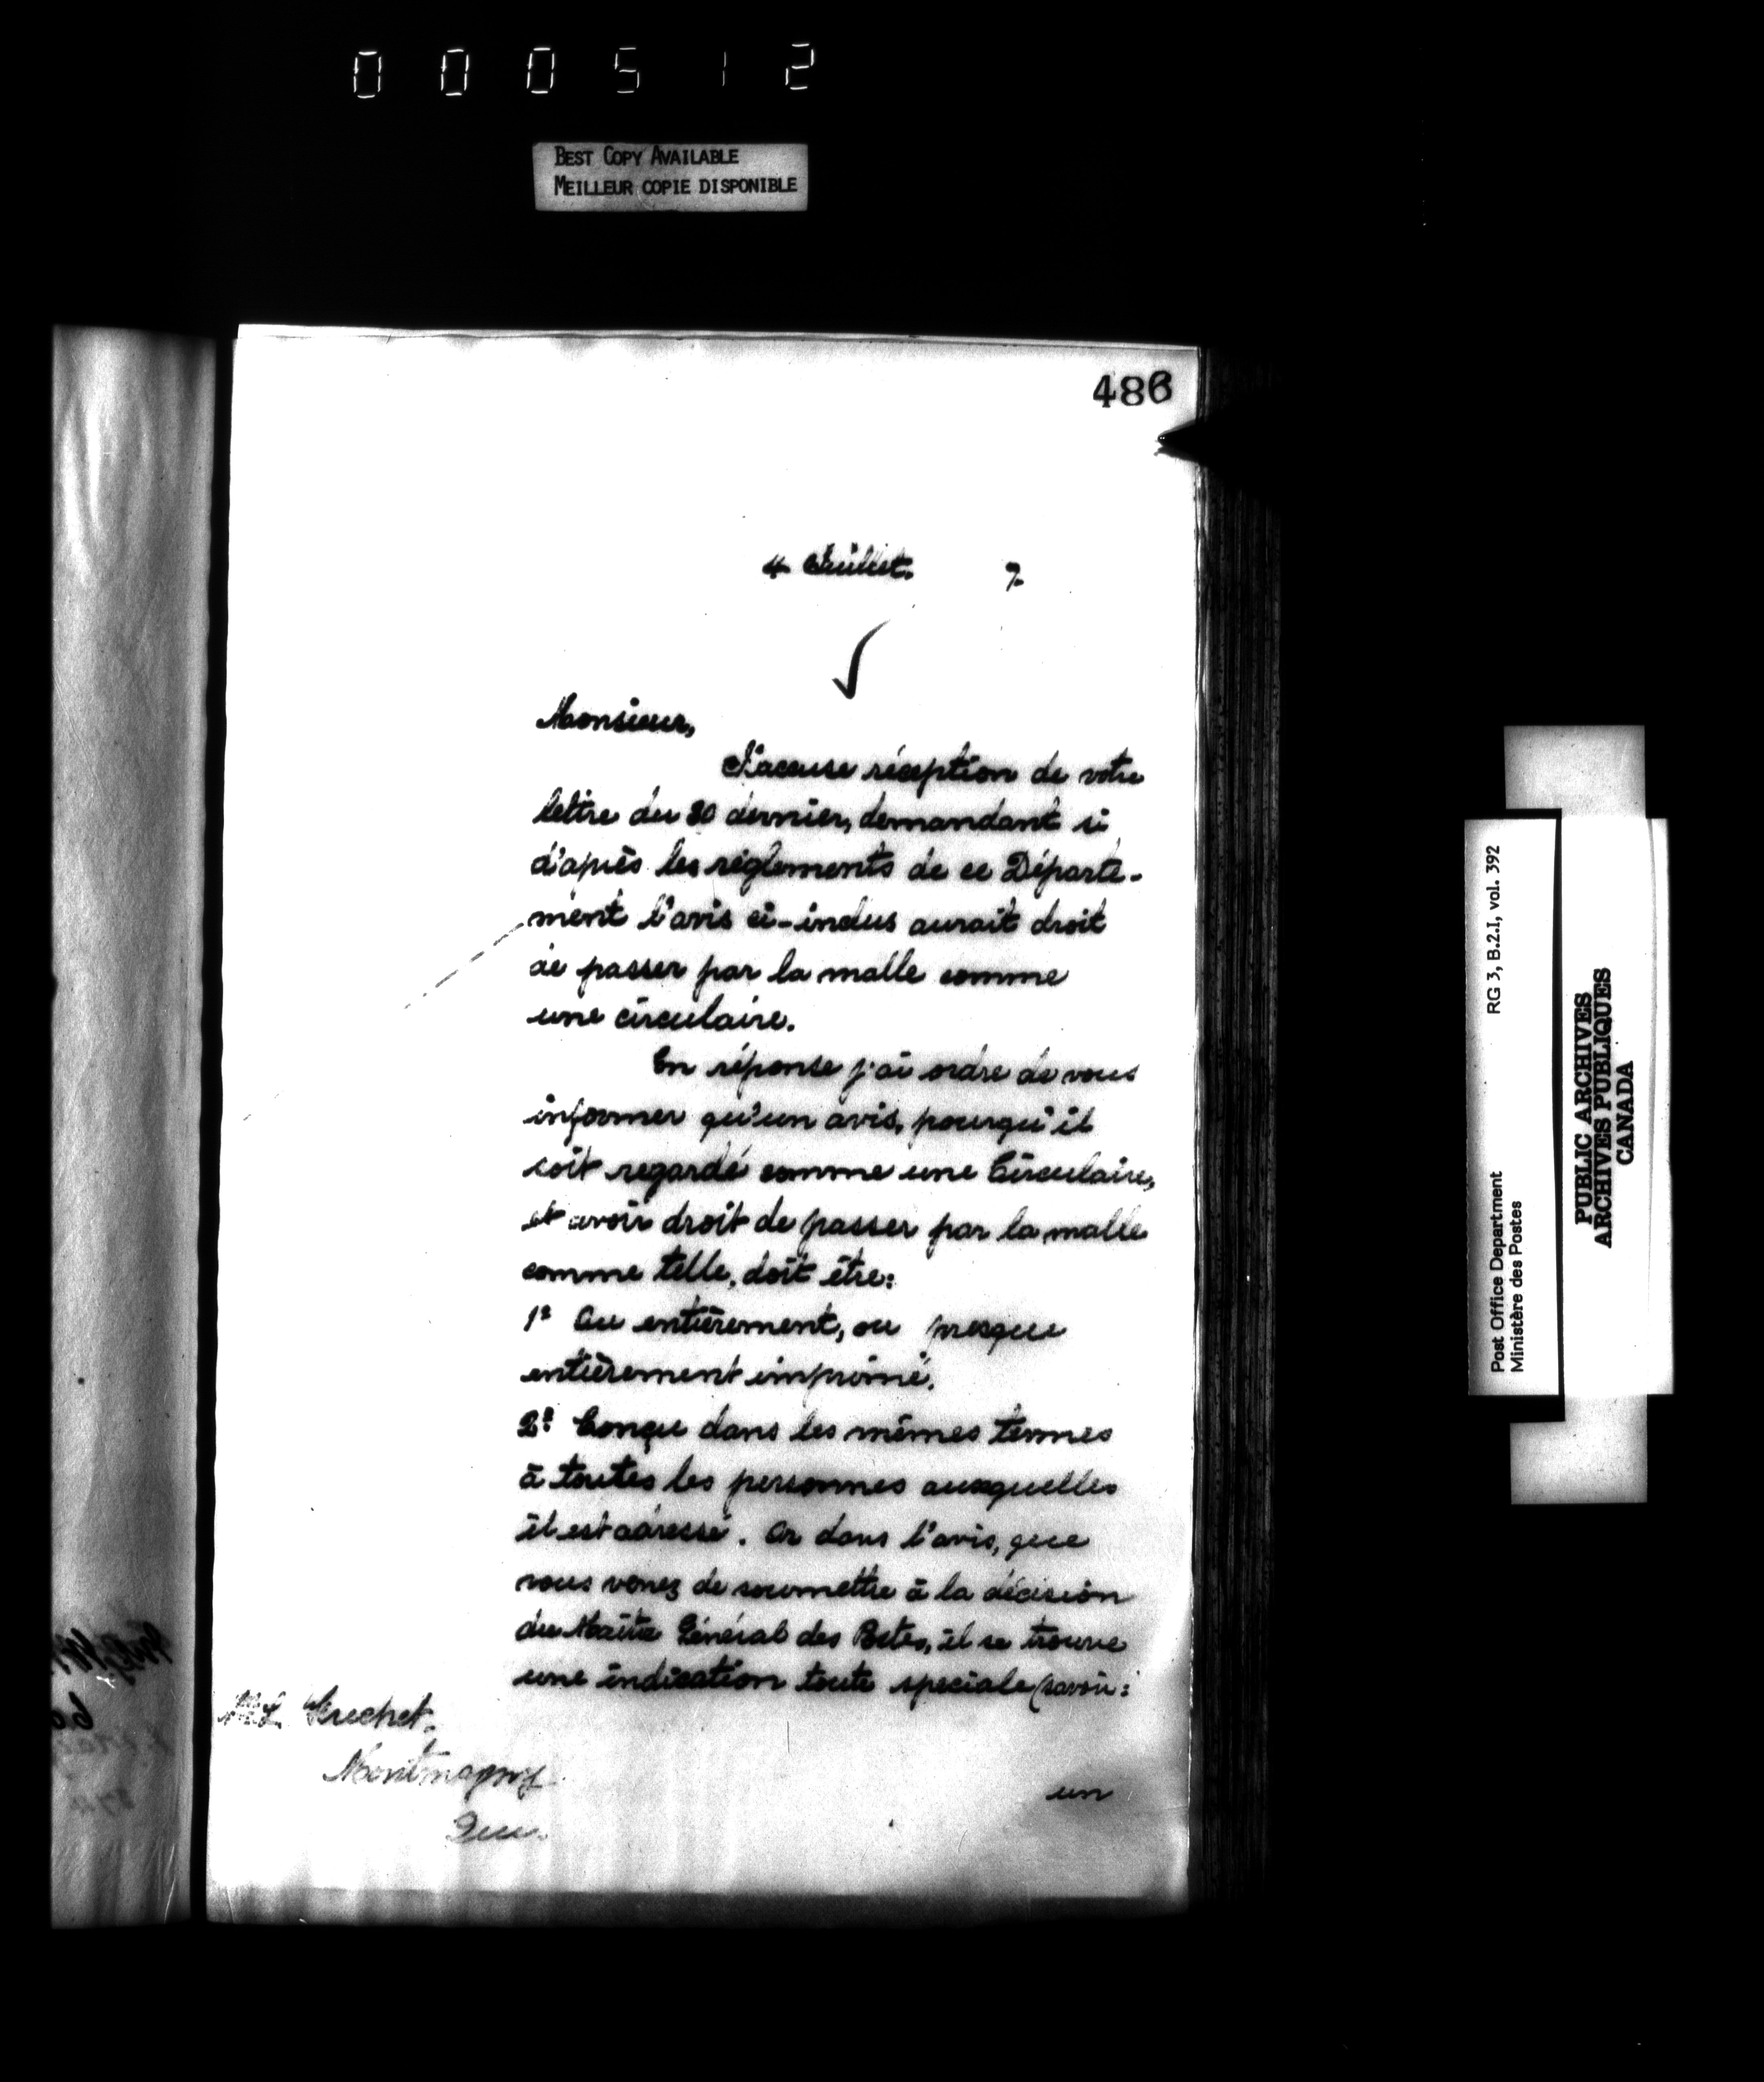 000512
BEST COPY AVAILABLE
MEILLEUR COPIE DISPONIBLE
486
4 Juillet. 7
Monsieur,
J'accuse réception de votre
lettre du 30 dernier, demandant si
d'après les réglements de ce Départe-
ment l'avis ci-inclus aurait droit
de passer par la malle comme
une circulaire.
En réponse j'ai ordre de vous
informer qu'un avis, pourqu'il
soit regardé comme une Circulaire,
et avoir droit de passer par la malle
comme telle, doit être:
1º Ou entièrement, ou presque
entièrement imprimé.
2º Conçu dans les mêmes termes
à toutes les personnes auxquelles
il est adressé. Or dans l'avis, que
vous venez de soumettre à la décision
du Maître Général des Postes, il se trouve
une indication toute speciale (savoir:
un
Montmagny
Que.
RG 3, B.2.I, vol. 392
Post Office Department
Ministère des Postes
PUBLIC ARCHIVES
ARCHIVES PUBLIQUES
CANADA